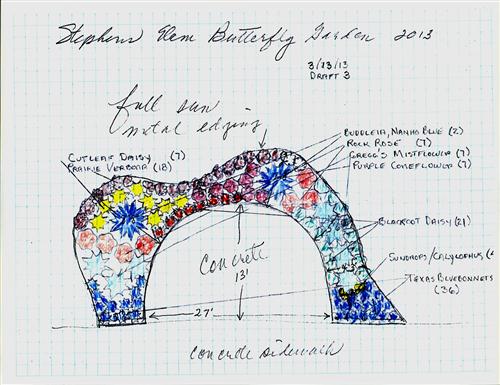 Stephens Elem Butterfly Garden 2013
3/23/13
DRAFT 3
full sun
metal edging
BUDDLEIA, NANHO BLUE (2)
ROCK ROSE (7)
GREGG'S MISTFLOWER (7)
PURPLE CONEFLOWER (7)
CUTLEAF DAISY (7)
PRAIRIE VERBENA (18)
BLACKFOOT DAISY (21)
SUNDROPS/CALYLOPHUS (
TEXAS BLUEBONNETS
(36)
concrete
13'
4.5'
27'
concrete sidewalk